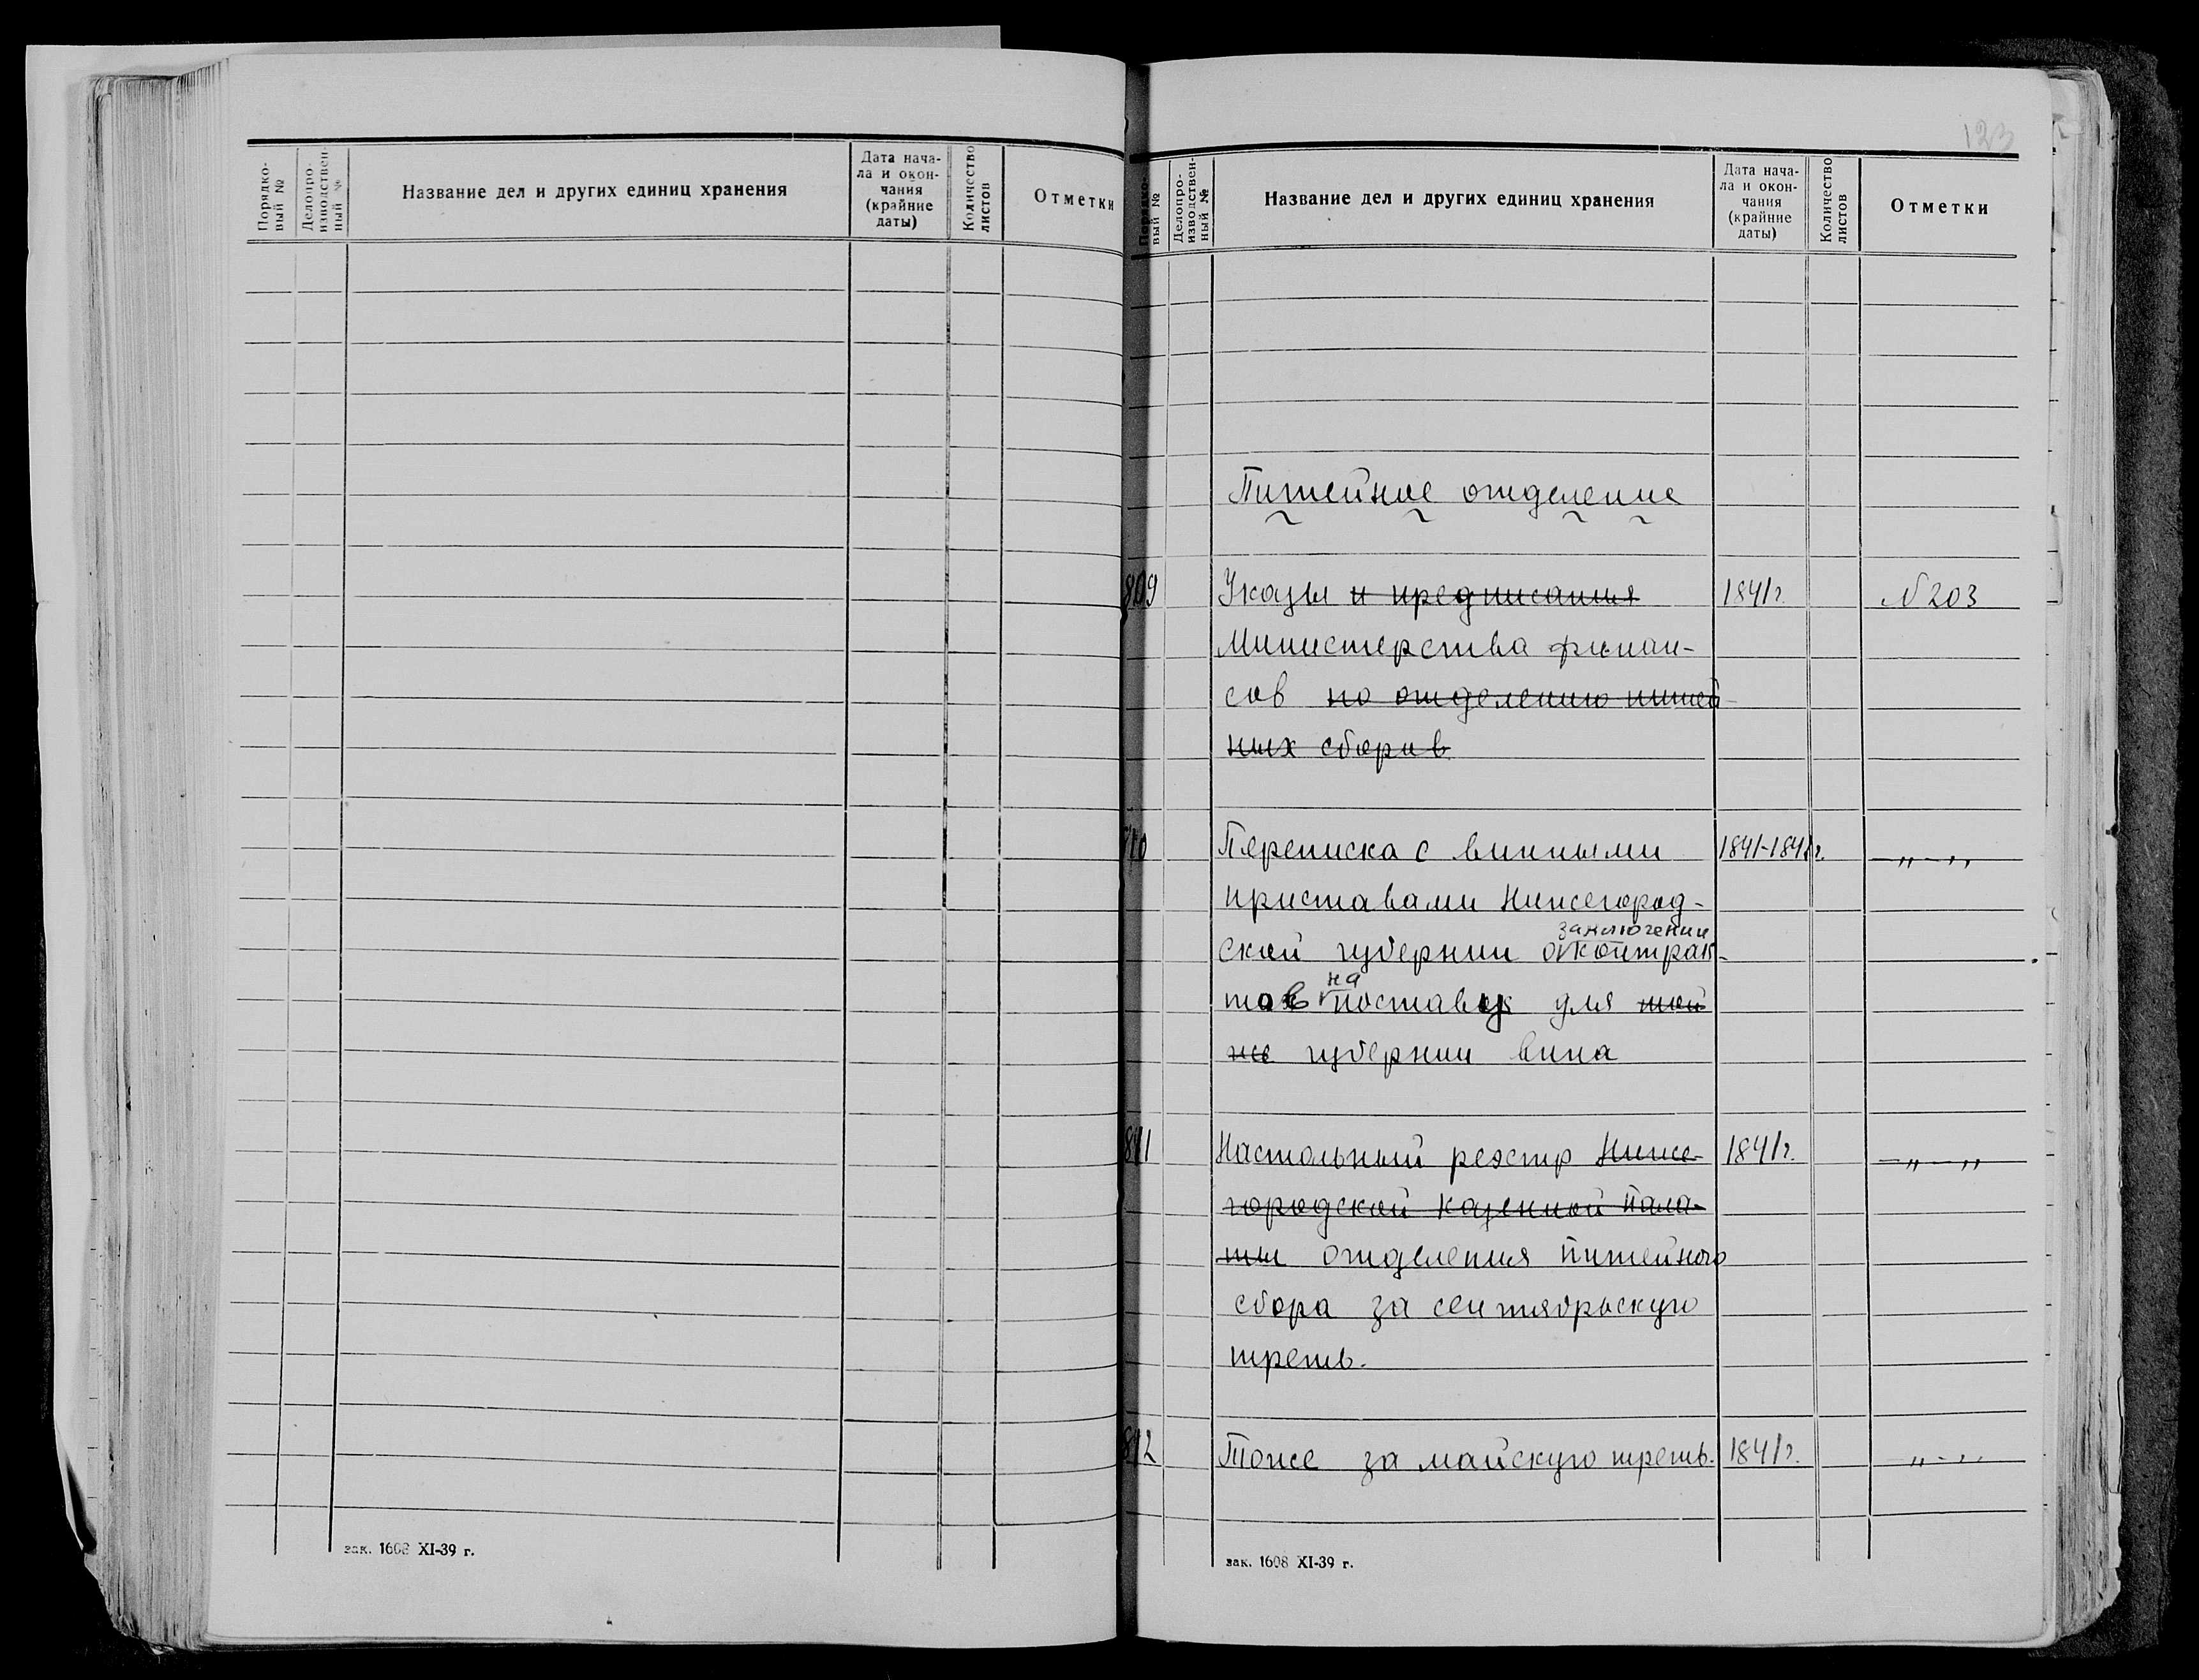 Порядко-
вый №
Делопро-
изводствен-
ный №
Название дел и других единиц хранения
Дата нача-
ла и окон-
чания
(крайние
даты)
Количество
листов
Отметки
зак. 1608 XI-39 г.
123
Порядко-
вый №
Делопро-
изводствен-
ный №
Название дел и других единиц хранения
Дата нача-
ла и окон-
чания
(крайние
даты)
Количество
листов
Отметки
Питейное отделение
809 Указы и предписания 1841г. №203
Министерства финан-
сов по отделению питей-
ных сборов
Переписка с винными 1841-1841г. —„—„
приставами Нижегород-
ской губернии о заключении контрак-
тов на поставку для той
же губернии вина
811 Настольный реэстр Ниже- 1841г. —„—„
городской казенной пала-
ты отделения питейного
сбора за сентябрьскую
треть.
812 Тоже за майскую треть. 1841г. „-„
зак. 1608 XI-39 г.